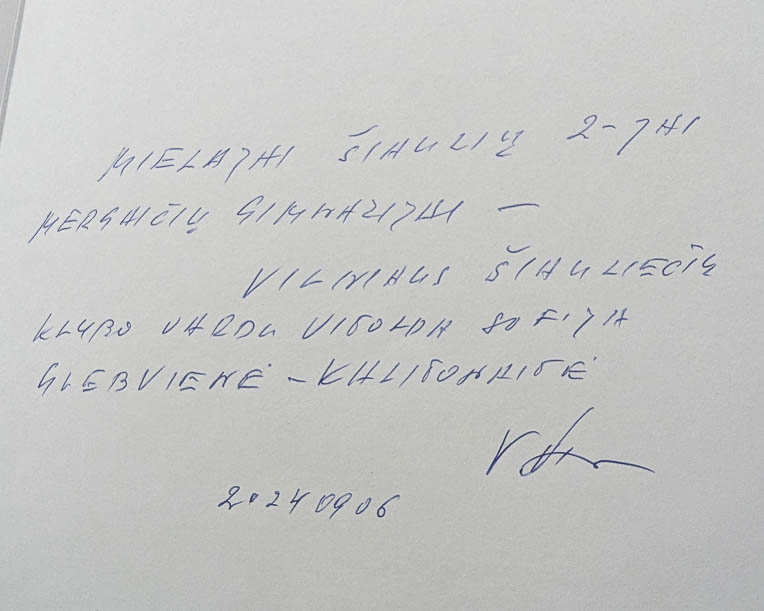 MIELAJAI ŠIAULIŲ 2-JAI
MERGAIČIŲ GIMNAZIJAI —
VILNIAUS ŠIAULIEČIŲ
KLUBO VARDU VITOLDA SOFIJA
GLEBVIENĖ - KALITONAITĖ
20240906